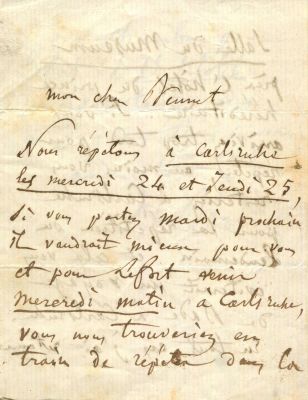 mon cher
Nous répétons à Carlsruhe
les mercredi 24 et Jeudi 25,
si vous partez mardi prochain
il vaudrait mieux pour vous
et pour Lefort venir
mercredi matin à Carlsruhe,
vous nous trouveriez en
train de répéter dans la